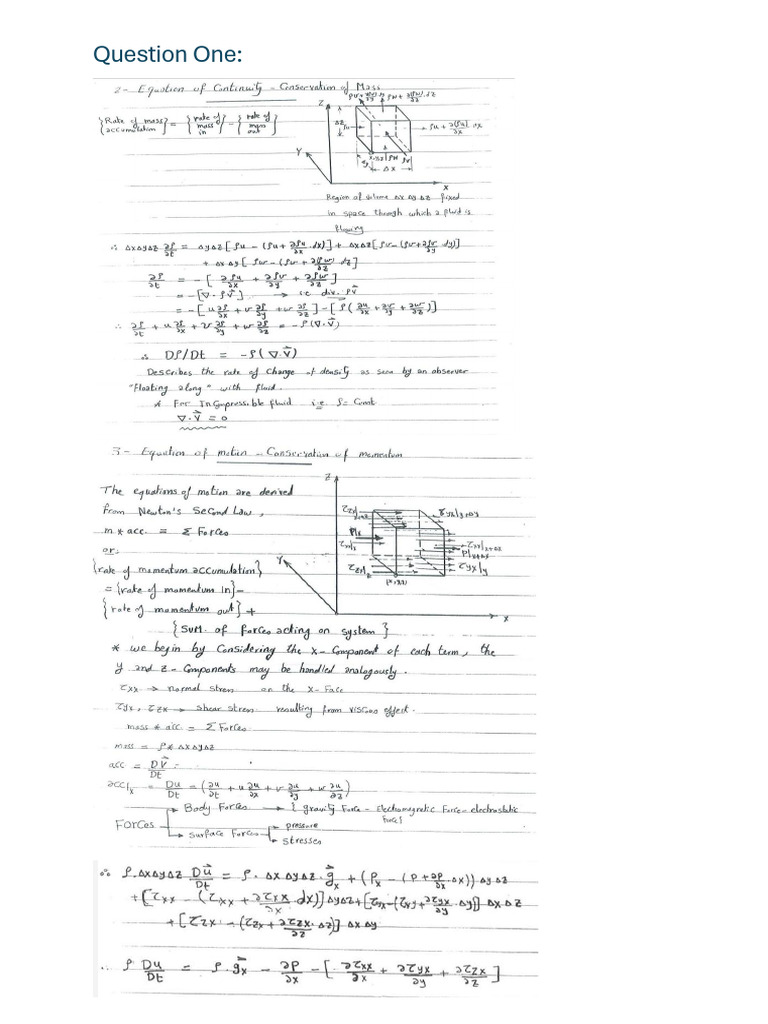 Question One:
2- Equation of Continuity - Conservation of Mass
{Rate of mass accumulation} = {rate of mass in} - {rate of mass out}
Z
ρu
ΔZ
ρu + ∂(ρu)/∂x dx
Y
Δx
x
Region of volume Δx Δy Δz fixed
in space through which a fluid is
flowing
∴ ΔxΔyΔz ∂ρ/∂t = ΔyΔz[ρu - (ρu + ∂ρu/∂x .dx)] + ΔxΔz[ρv - (ρv + ∂ρv/∂y dy)]
+ ΔxΔy[ρw - (ρw + ∂(ρw)/∂z dz]
∂ρ/∂t = -[∂ρu/∂x + ∂ρv/∂y + ∂ρw/∂z]
= -[∇.ρV⃗] → i.e. div. ρV⃗
= -[u ∂ρ/∂x + v ∂ρ/∂y + w ∂ρ/∂z] - [ρ(∂u/∂x + ∂v/∂y + ∂w/∂z)]
∴ ∂ρ/∂t + u ∂ρ/∂x + v ∂ρ/∂y + w ∂ρ/∂z = -ρ(∇.V⃗)
∴ Dρ/Dt = -ρ(∇.V⃗)
Describes the rate of change of density as seen by an observer
"Floating along" with fluid.
* For Incompressible fluid i.e ρ = Const
∇.V⃗ = 0
3- Equation of motion - Conservation of momentum
The equations of motion are derived
from Newton's Second Law,
m * acc. = Σ Forces
or.
{rate of momentum accumulation}
= {rate of momentum in} -
{rate of momentum out} +
{Sum. of forces acting on system}
Z
τzx|z+Δz
τyx|y+Δy
P|x
τxx|x
τxx|x+Δx
P|x+Δx
τzx|z
τyx|y
Y
(x,y,z)
x
* we begin by Considering the x-Component of each term, the
y and z-Components may be handled analogously.
τxx → normal stress on the x-Face
τyx, τzx → shear stress resulting from viscous effect.
mass * acc. = Σ Forces
mass = ρ * ΔxΔyΔz
acc = DV⃗/Dt
acc|x = Du/Dt = (∂u/∂t + u ∂u/∂x + v ∂u/∂y + w ∂u/∂z)
Forces → Body Forces → {gravity Force - Electromagnetic Force - electrostatic Force}
→ surface Forces → pressure
→ stresses
∴ ρ.ΔxΔyΔz Du⃗/Dt = ρ.Δx ΔyΔz.g⃗x + (Px - (P + ∂P/∂x .Δx)) Δy Δz
+ [τxx - (τxx + ∂τxx/∂x dx)] ΔyΔz + [τyx - (τxy + ∂τyx/∂y .Δy)] Δx Δz
+ [τzx - (τzx + ∂τzx/∂z .Δz)] Δx Δy
∴ ρ Du/Dt = ρ.g⃗x - ∂P/∂x - [∂τxx/∂x + ∂τyx/∂y + ∂τzx/∂z]